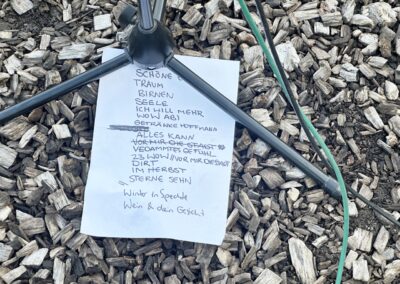 SCHÖNE
TRAUM
BIRNEN
SEELE
ICH WILL MEHR
WOW ABI
GETRÄNKE HOFFMANN
ALLES KANN
VOR MIR DIE
VERDAMMTES GEFÜHL
23 WOW // VOR MIR DIE
DIRT
IM HERBST
STERNE SEHN
Winter in
Wein & dein Gesicht